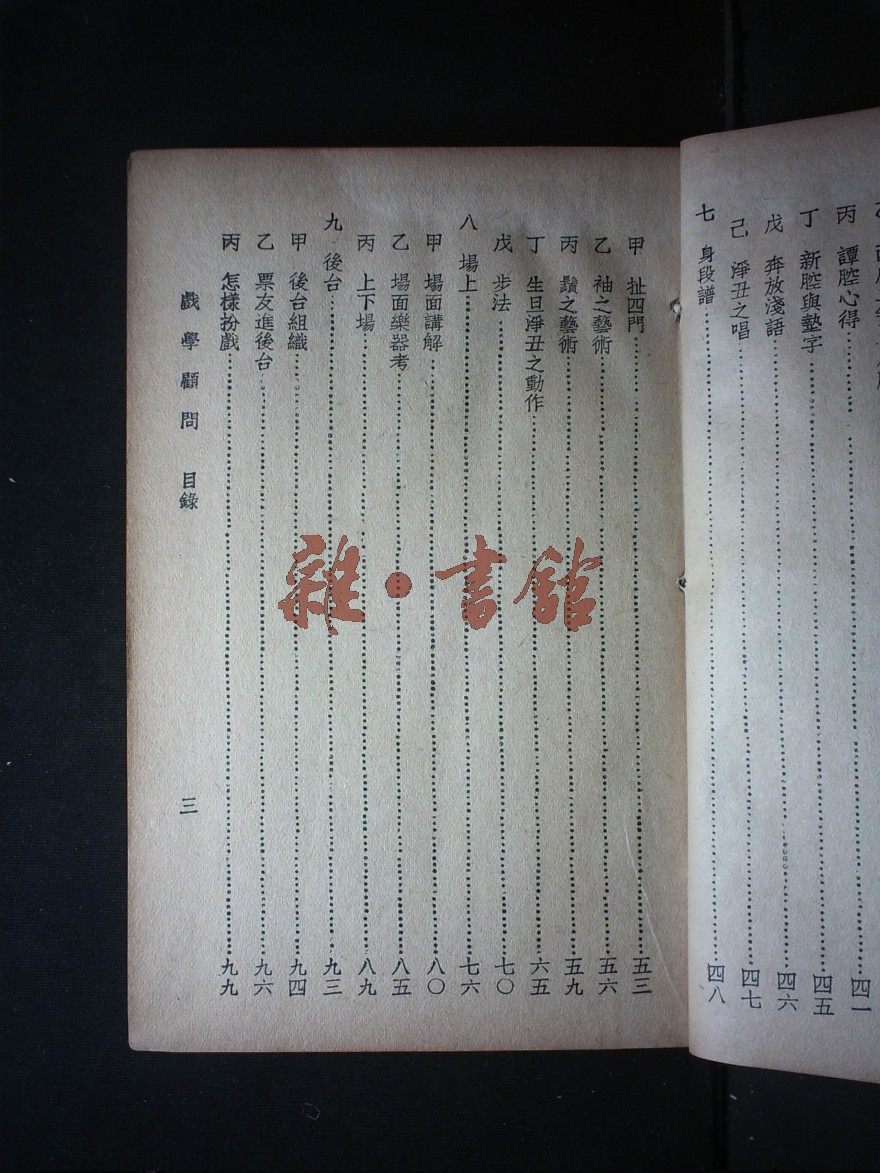 丙 譚腔心得 四一
丁 新腔與墊字 四五
戊 奔放淺語 四六
己 淨丑之唱 四七
七 身段譜 四八
甲 扯四門 五三
乙 袖之藝術 五六
丙 鬚之藝術 五九
丁 生旦淨丑之動作 六五
戊 步法 七〇
八 場上 七六
甲 場面講解 八〇
乙 場面樂器考 八五
丙 上下場 八九
九 後台 九三
甲 後台組織 九四
乙 票友進後台 九六
丙 怎樣扮戲 九九
戲學顧問 目錄 三
雜·書館